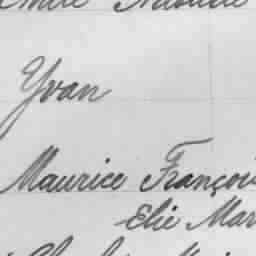 Yvan
Maurice Françoi
Elie Mar